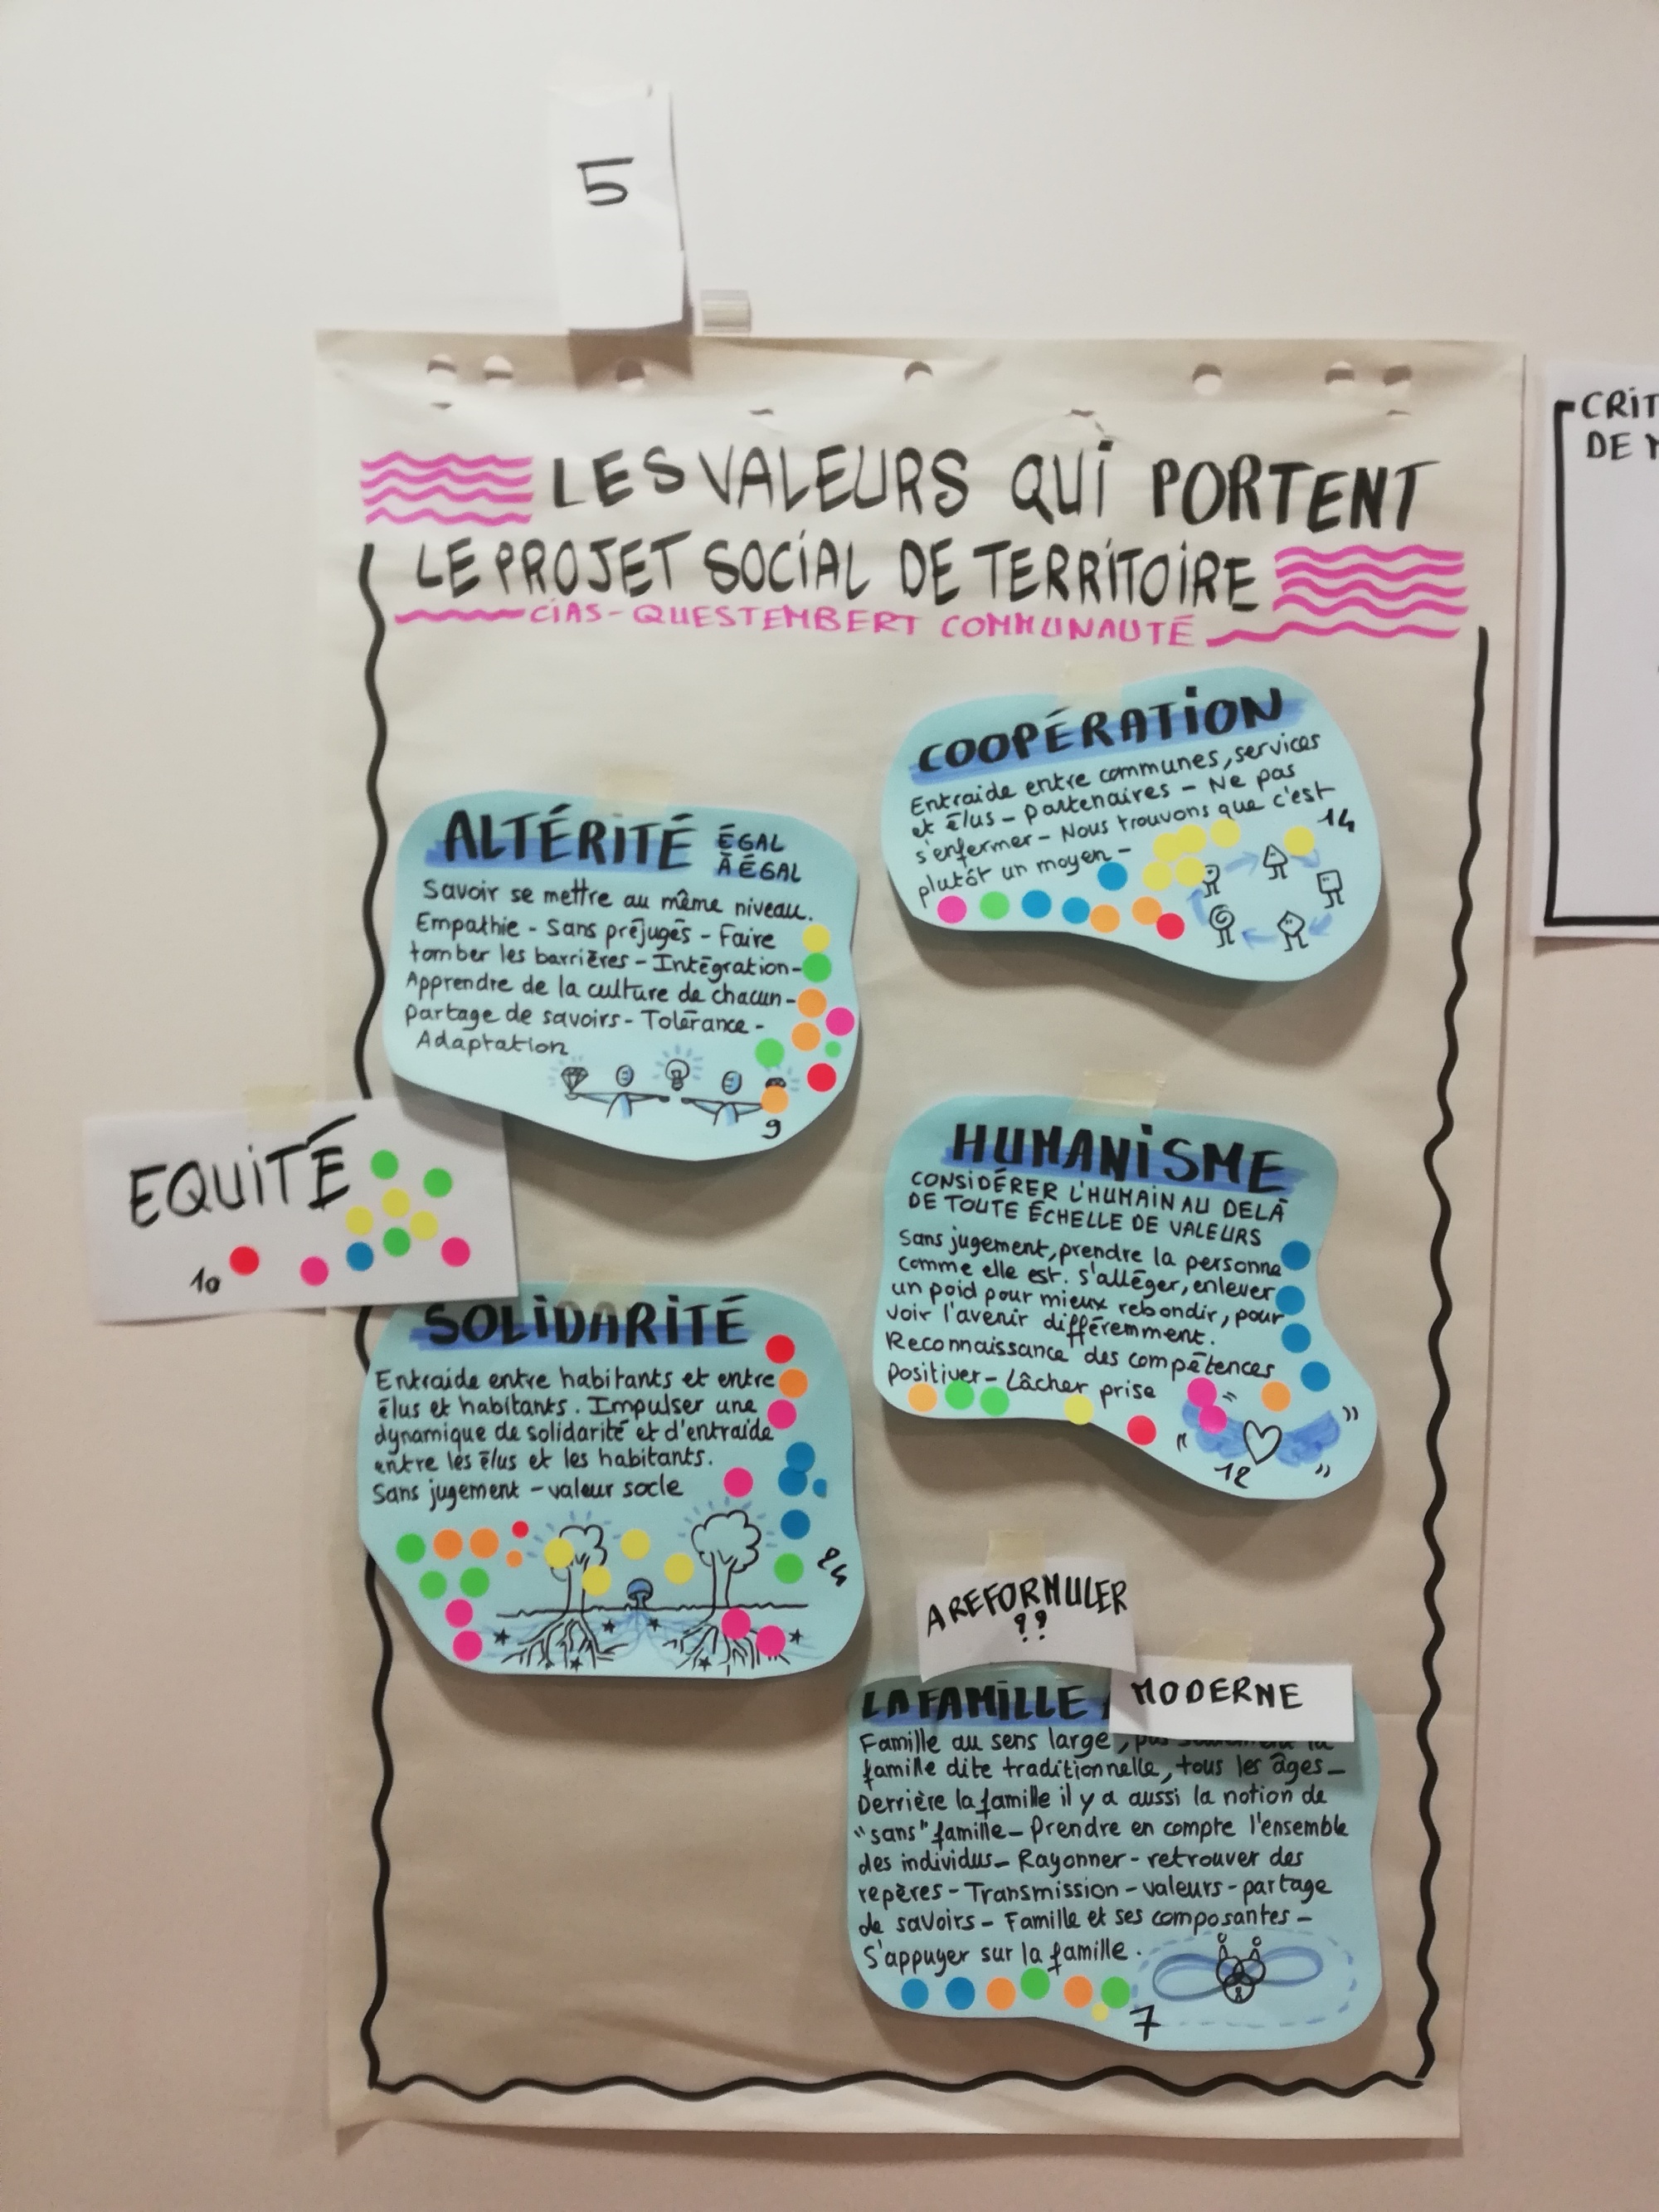 5
LES VALEURS QUI PORTENT
LE PROJET SOCIAL DE TERRITOIRE
CIAS-QUESTEMBERT COMMUNAUTÉ
CRIT
DE
COOPÉRATION
Entraide entre communes, services
et élus - Partenaires - Ne pas
s'enfermer - Nous trouvons que c'est
plutôt un moyen -
14
ALTÉRITÉ ÉGAL
À ÉGAL
Savoir se mettre au même niveau.
Empathie - Sans préjugés - Faire
tomber les barrières - Intégration -
Apprendre de la culture de chacun -
partage de savoirs - Tolérance -
Adaptation
9
EQUITÉ
10
HUMANISME
CONSIDÉRER L'HUMAIN AU DELÀ
DE TOUTE ÉCHELLE DE VALEURS
Sans jugement, prendre la personne
comme elle est. s'alléger, enlever
un poid pour mieux rebondir, pour
voir l'avenir différemment.
Reconnaissance des compétences
positiver - Lâcher prise
12
SOLIDARITÉ
Entraide entre habitants et entre
élus et habitants. Impulser une
dynamique de solidarité et d'entraide
entre les élus et les habitants.
Sans jugement - valeur socle
24
A REFORMULER
??
LA FAMILLE
MODERNE
Famille au sens large, pas seulement la
famille dite traditionnelle, tous les âges -
Derrière la famille il y a aussi la notion de
"sans" famille - Prendre en compte l'ensemble
des individus - Rayonner - retrouver des
repères - Transmission - valeurs - partage
de savoirs - Famille et ses composantes -
S'appuyer sur la famille.
7